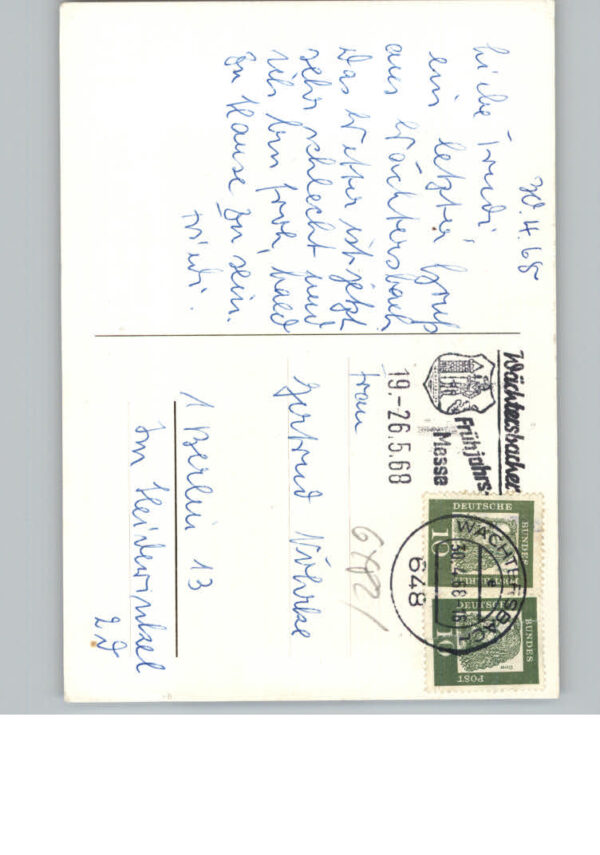 30.4.68
Liebe Trudi.
ein letzter Gruß
aus Wächtersbach
Das Wetter ist jetzt
sehr schlecht und
ich bin froh, bald
zu Hause zu sein.
Wächtersbacher
Frühjahrs-
Messe
19.-26.5.68
WÄCHTERSBACH
648
DEUTSCHE
BUNDES
POST
10
DEUTSCHE
BUNDES
POST
10
Frau
Gertrud
1 Berlin 13
Im Heidewinkel